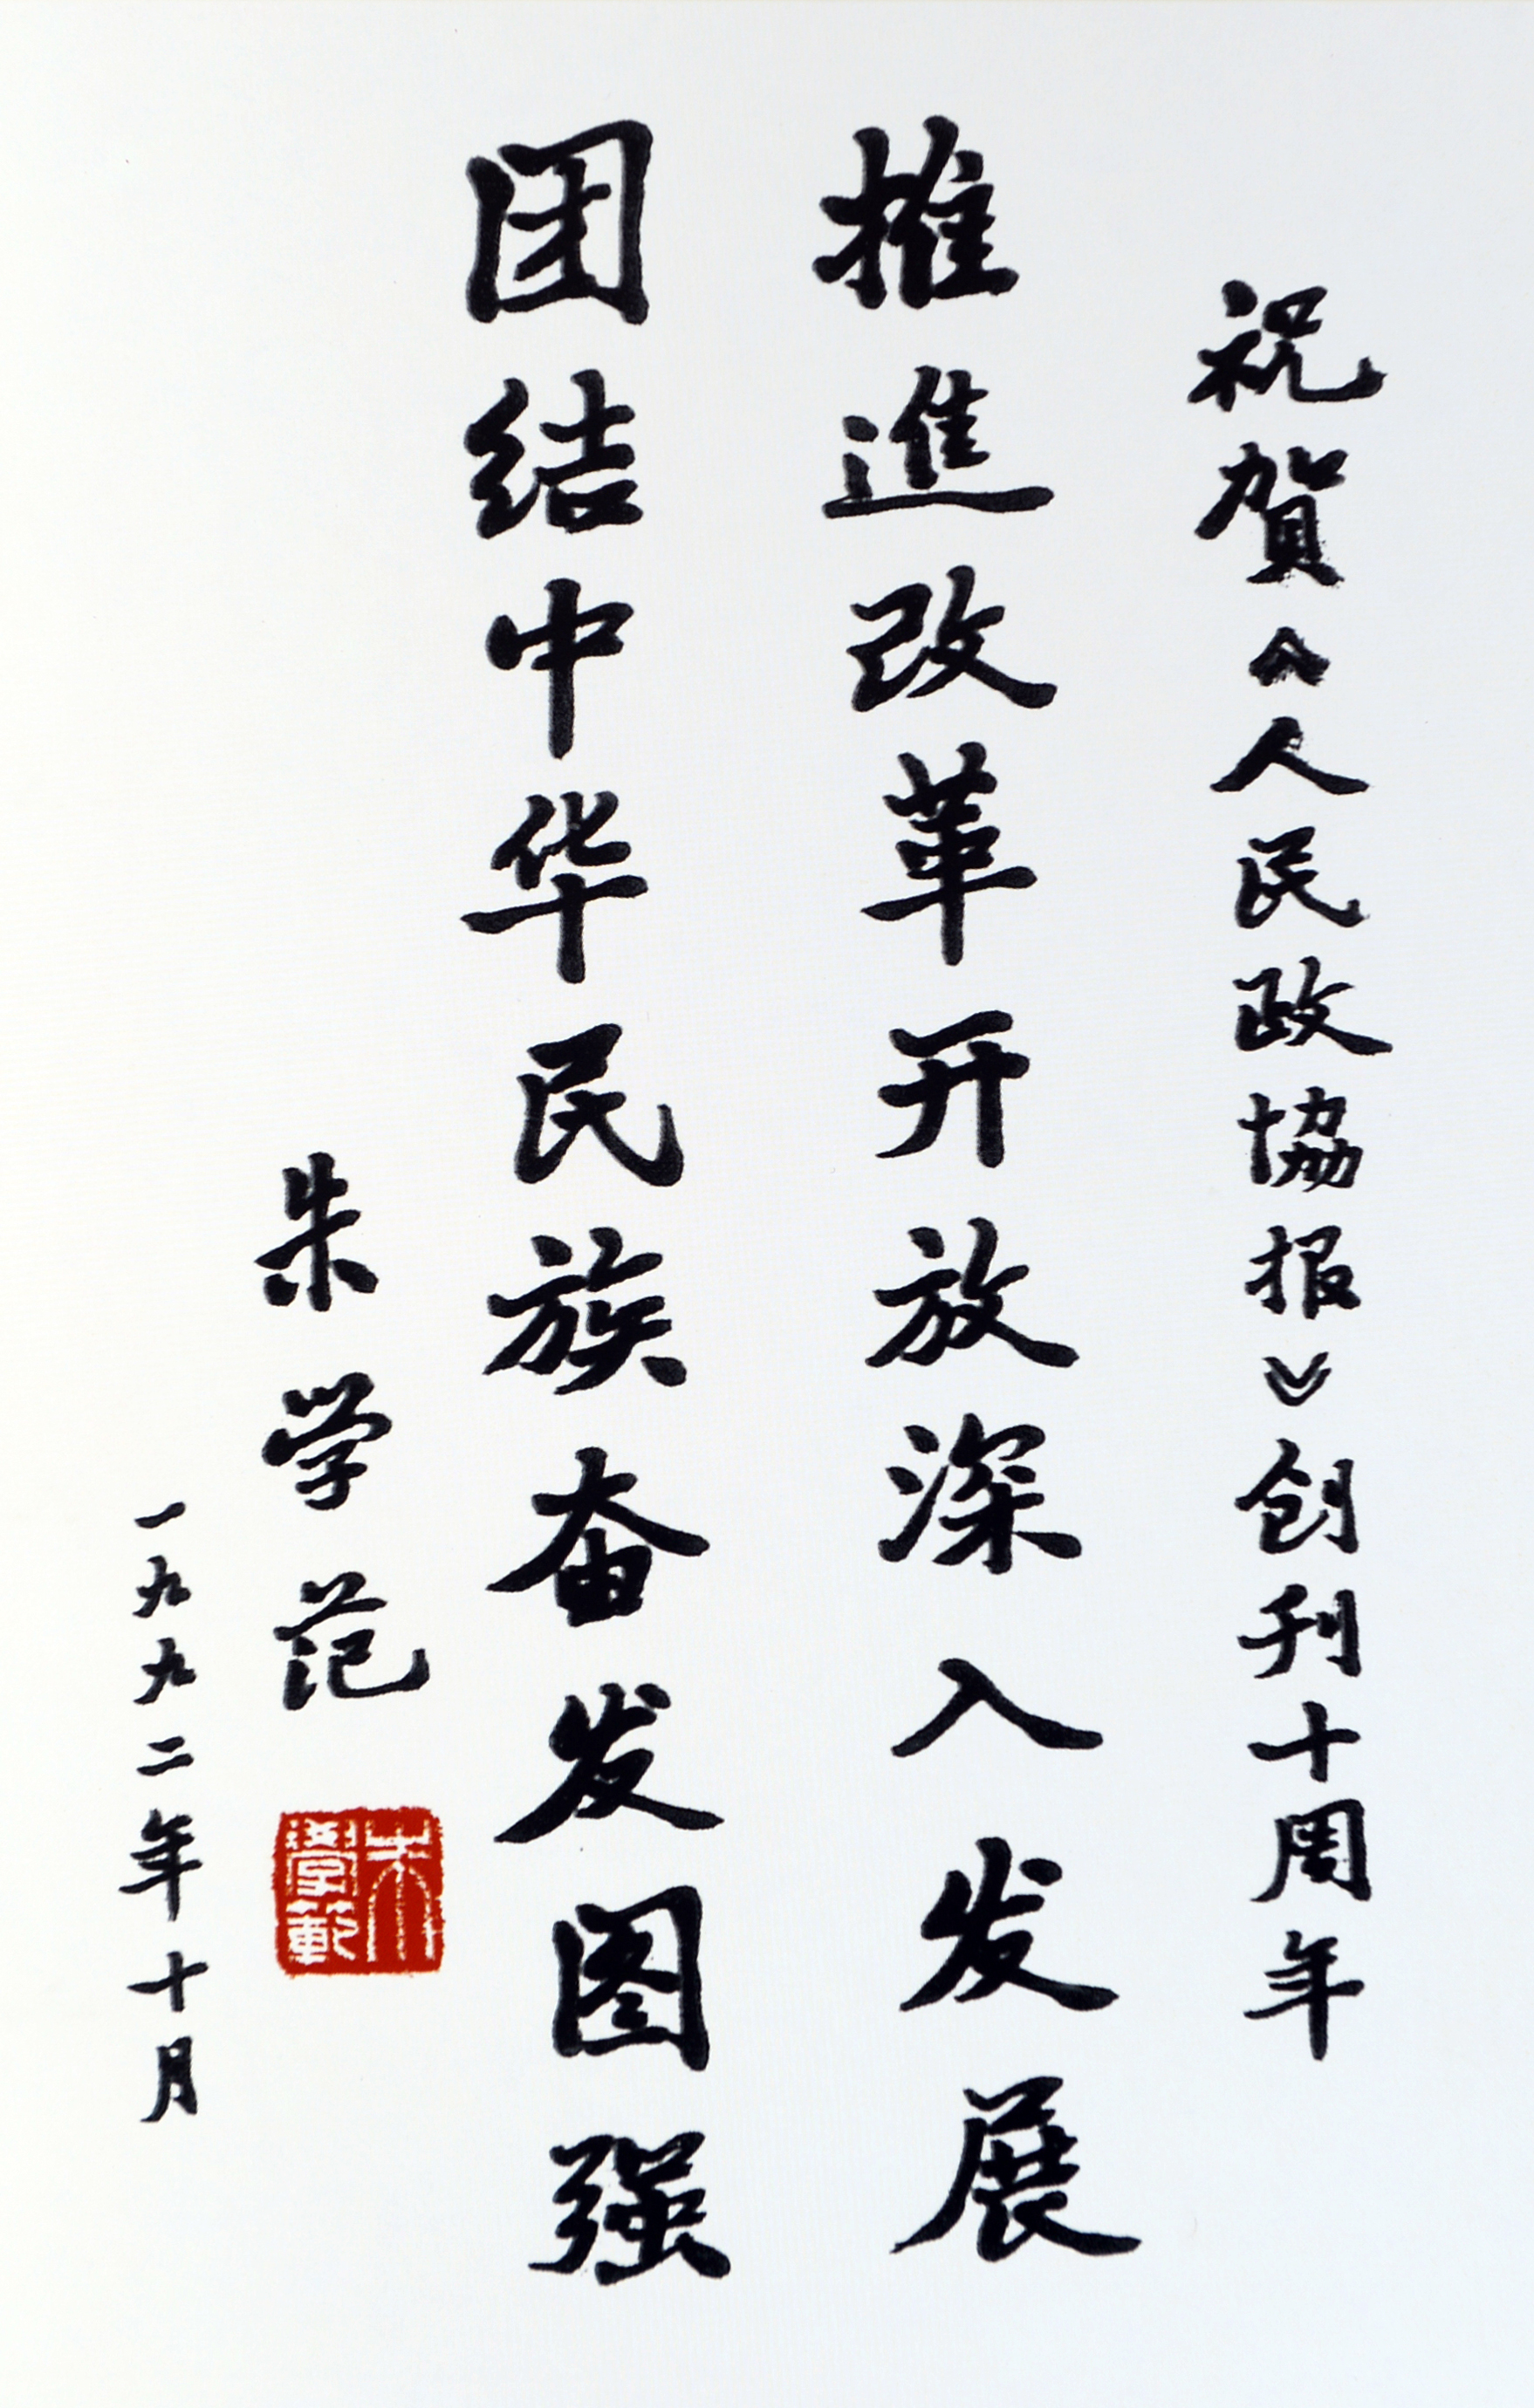 祝賀《人民政協报》创刊十周年
推進改革开放深入发展
团结中华民族奋发图强
朱学范
朱學範
一九九二年十月